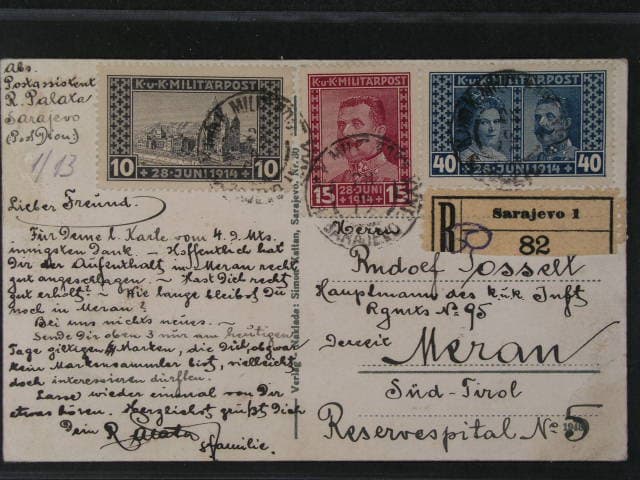 Abs.
Postassistent
R. Palata
Sarajevo
1/13
K.u.K. MILITÄRPOST
10 10
28·JUNI 1914
K.u.K. MILITÄRPOST
15 15
28·JUNI
1914
K.u.K. MILITÄRPOST
40 40
28·JUNI 1914
R
Sarajevo 1
82
Lieber Freund.
Für Deine l. Karte vom 4. d. Mts.
innigsten Dank. – Hoffentlich hat
Dir der Aufenthalt in Meran recht
gut angeschlagen. – Hast Dich recht
gut erholt? – Wie lange bleibst Du
noch in Meran?
Bei uns nichts neues. –
Sende Dir oben 3 nur am heutigen
Tage giltigen Marken, die Dich, obzwar
kein Markensammler bist, vielleicht
doch interessieren dürften.
Lasse wieder einmal von Dir
etwas hören. Herzlichst grüßt Dich
Dein R. Palata
Familie.
Verlag u. Niederlage: Simon Kattan, Sarajevo. Nr. 30
Herrn
Rudolf Posselt
Hauptmann des k.u.k. Inft
Rgmts No 95
Derzeit
Meran
Süd-Tirol
Reservespital No 5